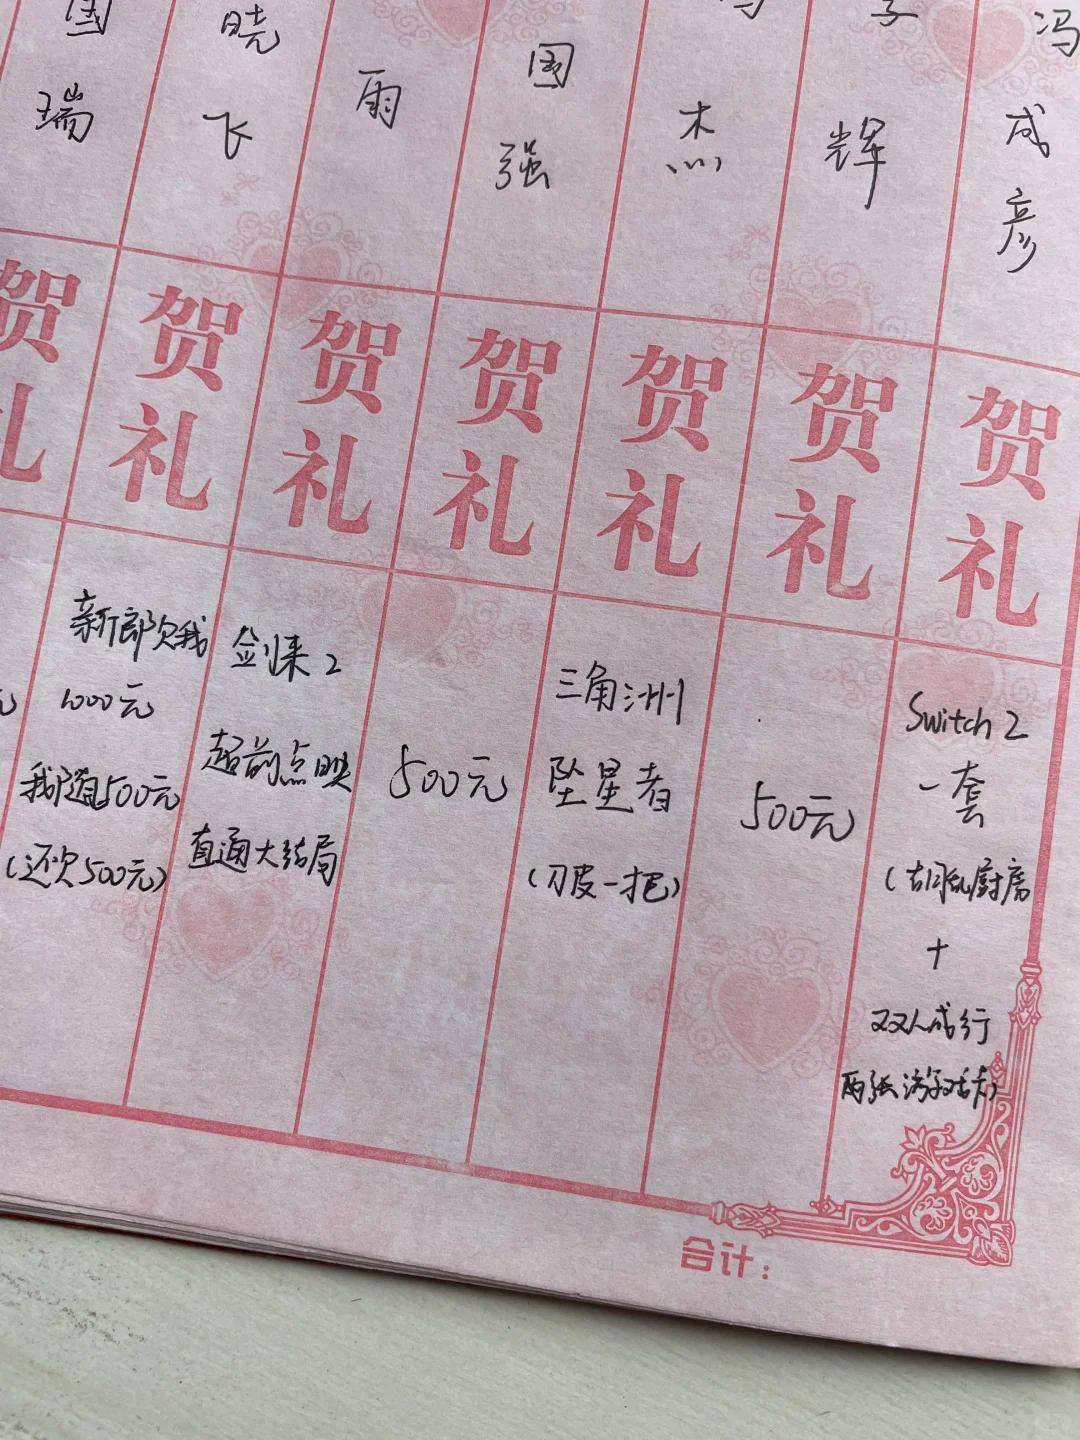 冯成彦
贺礼
Switch 2
一套
(胡闹厨房
+
双人成行
两张游戏卡)
辉
贺礼
500元
杰
贺礼
三角洲
坠星者
(刀皮一把)
国强
贺礼
500元
雨
贺礼
剑来2
超前点映
直通大结局
晓飞
贺礼
新郎欠我
1000元
我随500元
(还欠500元)
国瑞
贺礼
元
合计：